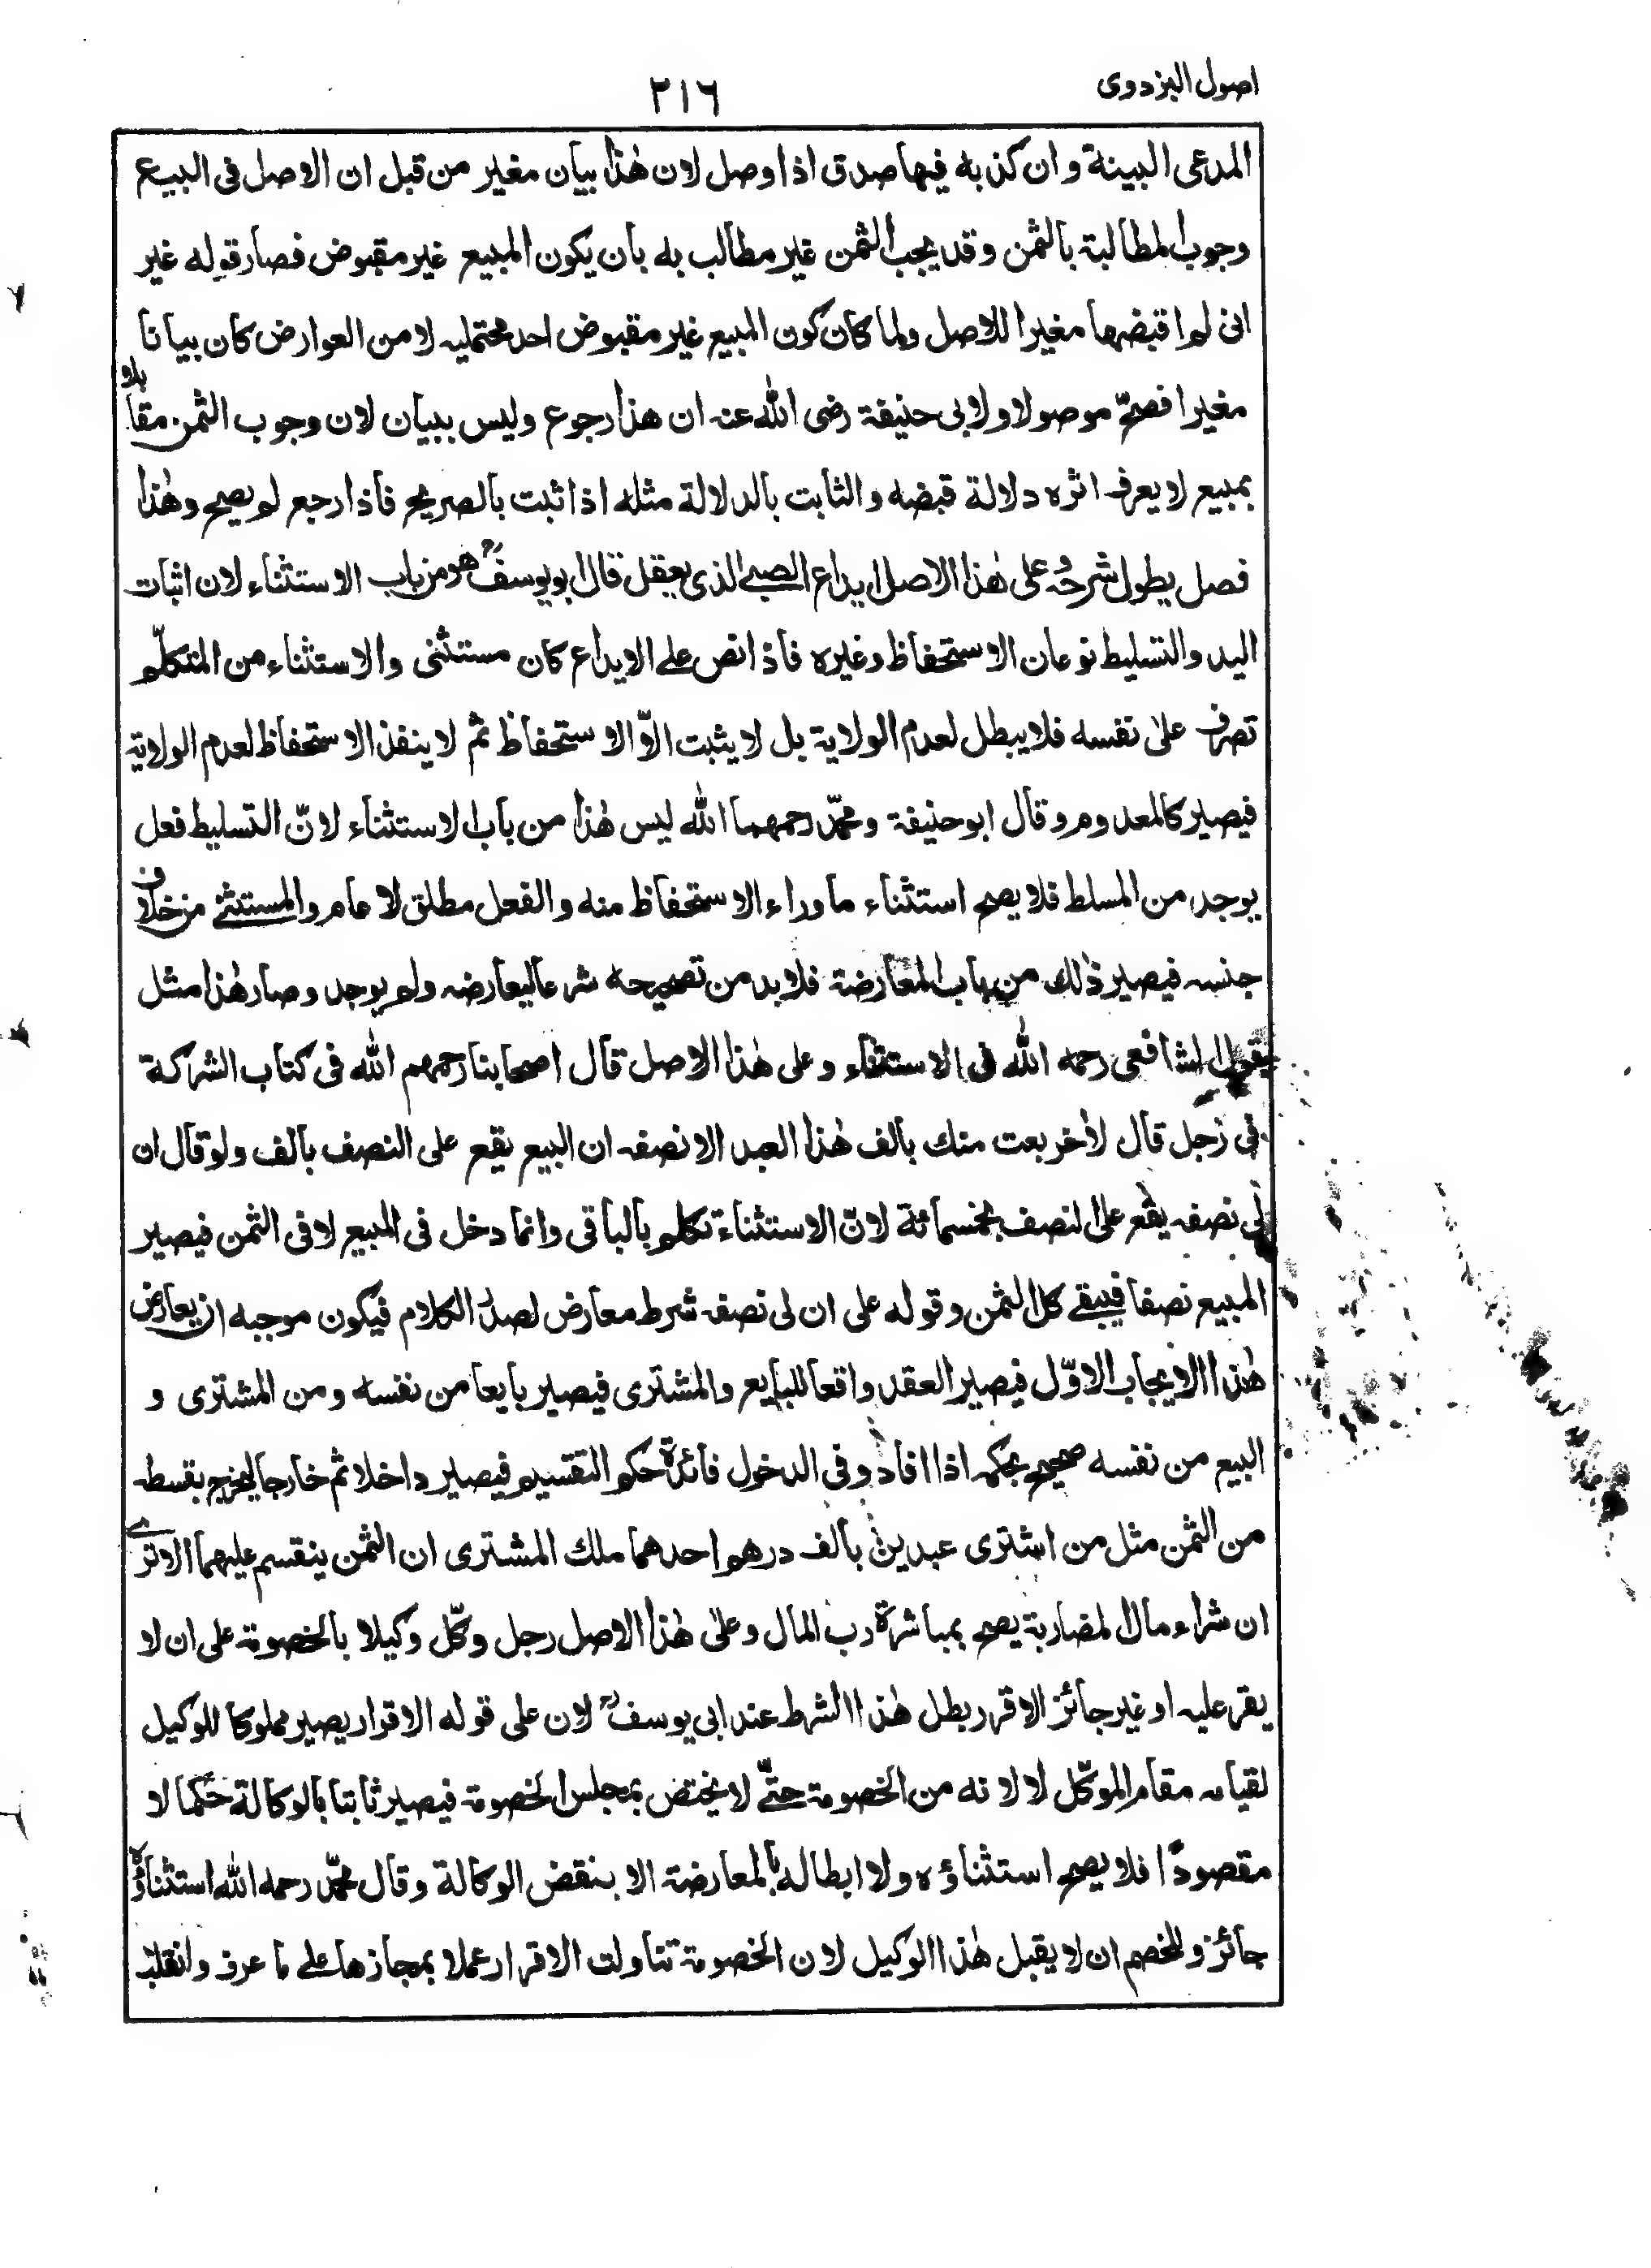 اصول البزدوى
٢١٦
المدعى البينة وان كذبه فيها صدق اذا وصل لان هٰذا بيان مغير من قبل ان الاصل فى البيع
وجوب المطالبة بالثمن وقد يجب الثمن غير مطالب به بان يكون المبيع غير مقبوض فصار قوله غير
انى لم اقبضها مغيرا للاصل ولما كان كون المبيع غير مقبوض احد محتمليه لا من العوارض كان بيانا
مغيرا فصحّ موصولا ولابى حنيفة رضى الله عنه ان هذا رجوع وليس ببيان لان وجوب الثمن مقابلا
بمبيع لا يعرف اثره دلالة قبضه والثابت بالدلالة مثله اذا ثبت بالصريح فاذا رجع لم يصح وهٰذا
فصل يطول شرحُه وعلى هٰذا الاصل ايداع الصبے الذى يعقل قال ابو يوسفؒ هو من باب الاستثناء لان اثبات
اليد والتسليط نوعان الاستحفاظ وغيره فاذا نص على الايداع كان مستثنى والاستثناء من المتكلّم
تصرف علىٰ نفسه فلا يبطل لعدم الولاية بل لا يثبت الاّ الاستحفاظ ثم لا ينفذ الاستحفاظ لعدم الولاية
فيصير كالمعدوم وقال ابو حنيفة ومحمّد رحمهما الله ليس هٰذا من باب الاستثناء لانّ التسليط فعل
يوجد من المسلط فلا يصح استثناء ما وراء الاستحفاظ منه والفعل مطلق لا عام والمستثنے من خلاف
جنسه فيصير ذٰلك من باب المعارضة فلا بد من تصحيحه شرعا ليعارضه ولم يوجد وصار هٰذا مثل
يقول الشافعى رحمه الله فى الاستثناء وعلى هٰذا الاصل قال اصحابنا رحمهم الله فى كتاب الشركة
فى رجل قال لأخر بعت منك بالف هٰذا العبد الا نصفه ان البيع يقع على النصف بالف ولو قال ان
لى نصفه يقع على النصف بخمسمائة لانّ الاستثناء تكلم بالباقى وانما دخل فى المبيع لا فى الثمن فيصير
المبيع نصفا فيبقے كل الثمن وقوله على ان لى نصفه شرط معارض لصدر الكلام فيكون موجبه ان يعارض
هٰذا الايجاب الاوّل فيصير العقد واقعا للبايع والمشترى فيصير بايعا من نفسه ومن المشترى و
البيع من نفسه صحيح بحكمه اذا افاد وفى الدخول فائدة حكم التقسيم فيصير داخلا ثم خارجا ليخرج بقسطه
من الثمن مثل من اشترى عبدين بالف درهم احدهما ملك المشترى ان الثمن ينقسم عليهما الا ترے
ان شراء مال المضاربة يصح بمباشرة رب المال وعلىٰ هٰذا الاصل رجل وكّل وكيلا بالخصومة على ان لا
يقر عليه او غير جائز الاقرر بطل هٰذا الشرط عند ابى يوسفؒ لان على قوله الاقرار يصير مملوكا للوكيل
لقيامه مقام الموكّل لا لانه من الخصومة حتّے لا يختص بمجلس الخصومة فيصير ثابتا بالوكالة حكما لا
مقصودًا فلا يصح استثناؤه ولا ابطاله بالمعارضة الا بنقض الوكالة وقال محمّد رحمه الله استثناؤه
جائز وللخصم ان لا يقبل هٰذا الوكيل لان الخصومة تناولت الاقرار عملا بمجازها على ما عرف وانقلب